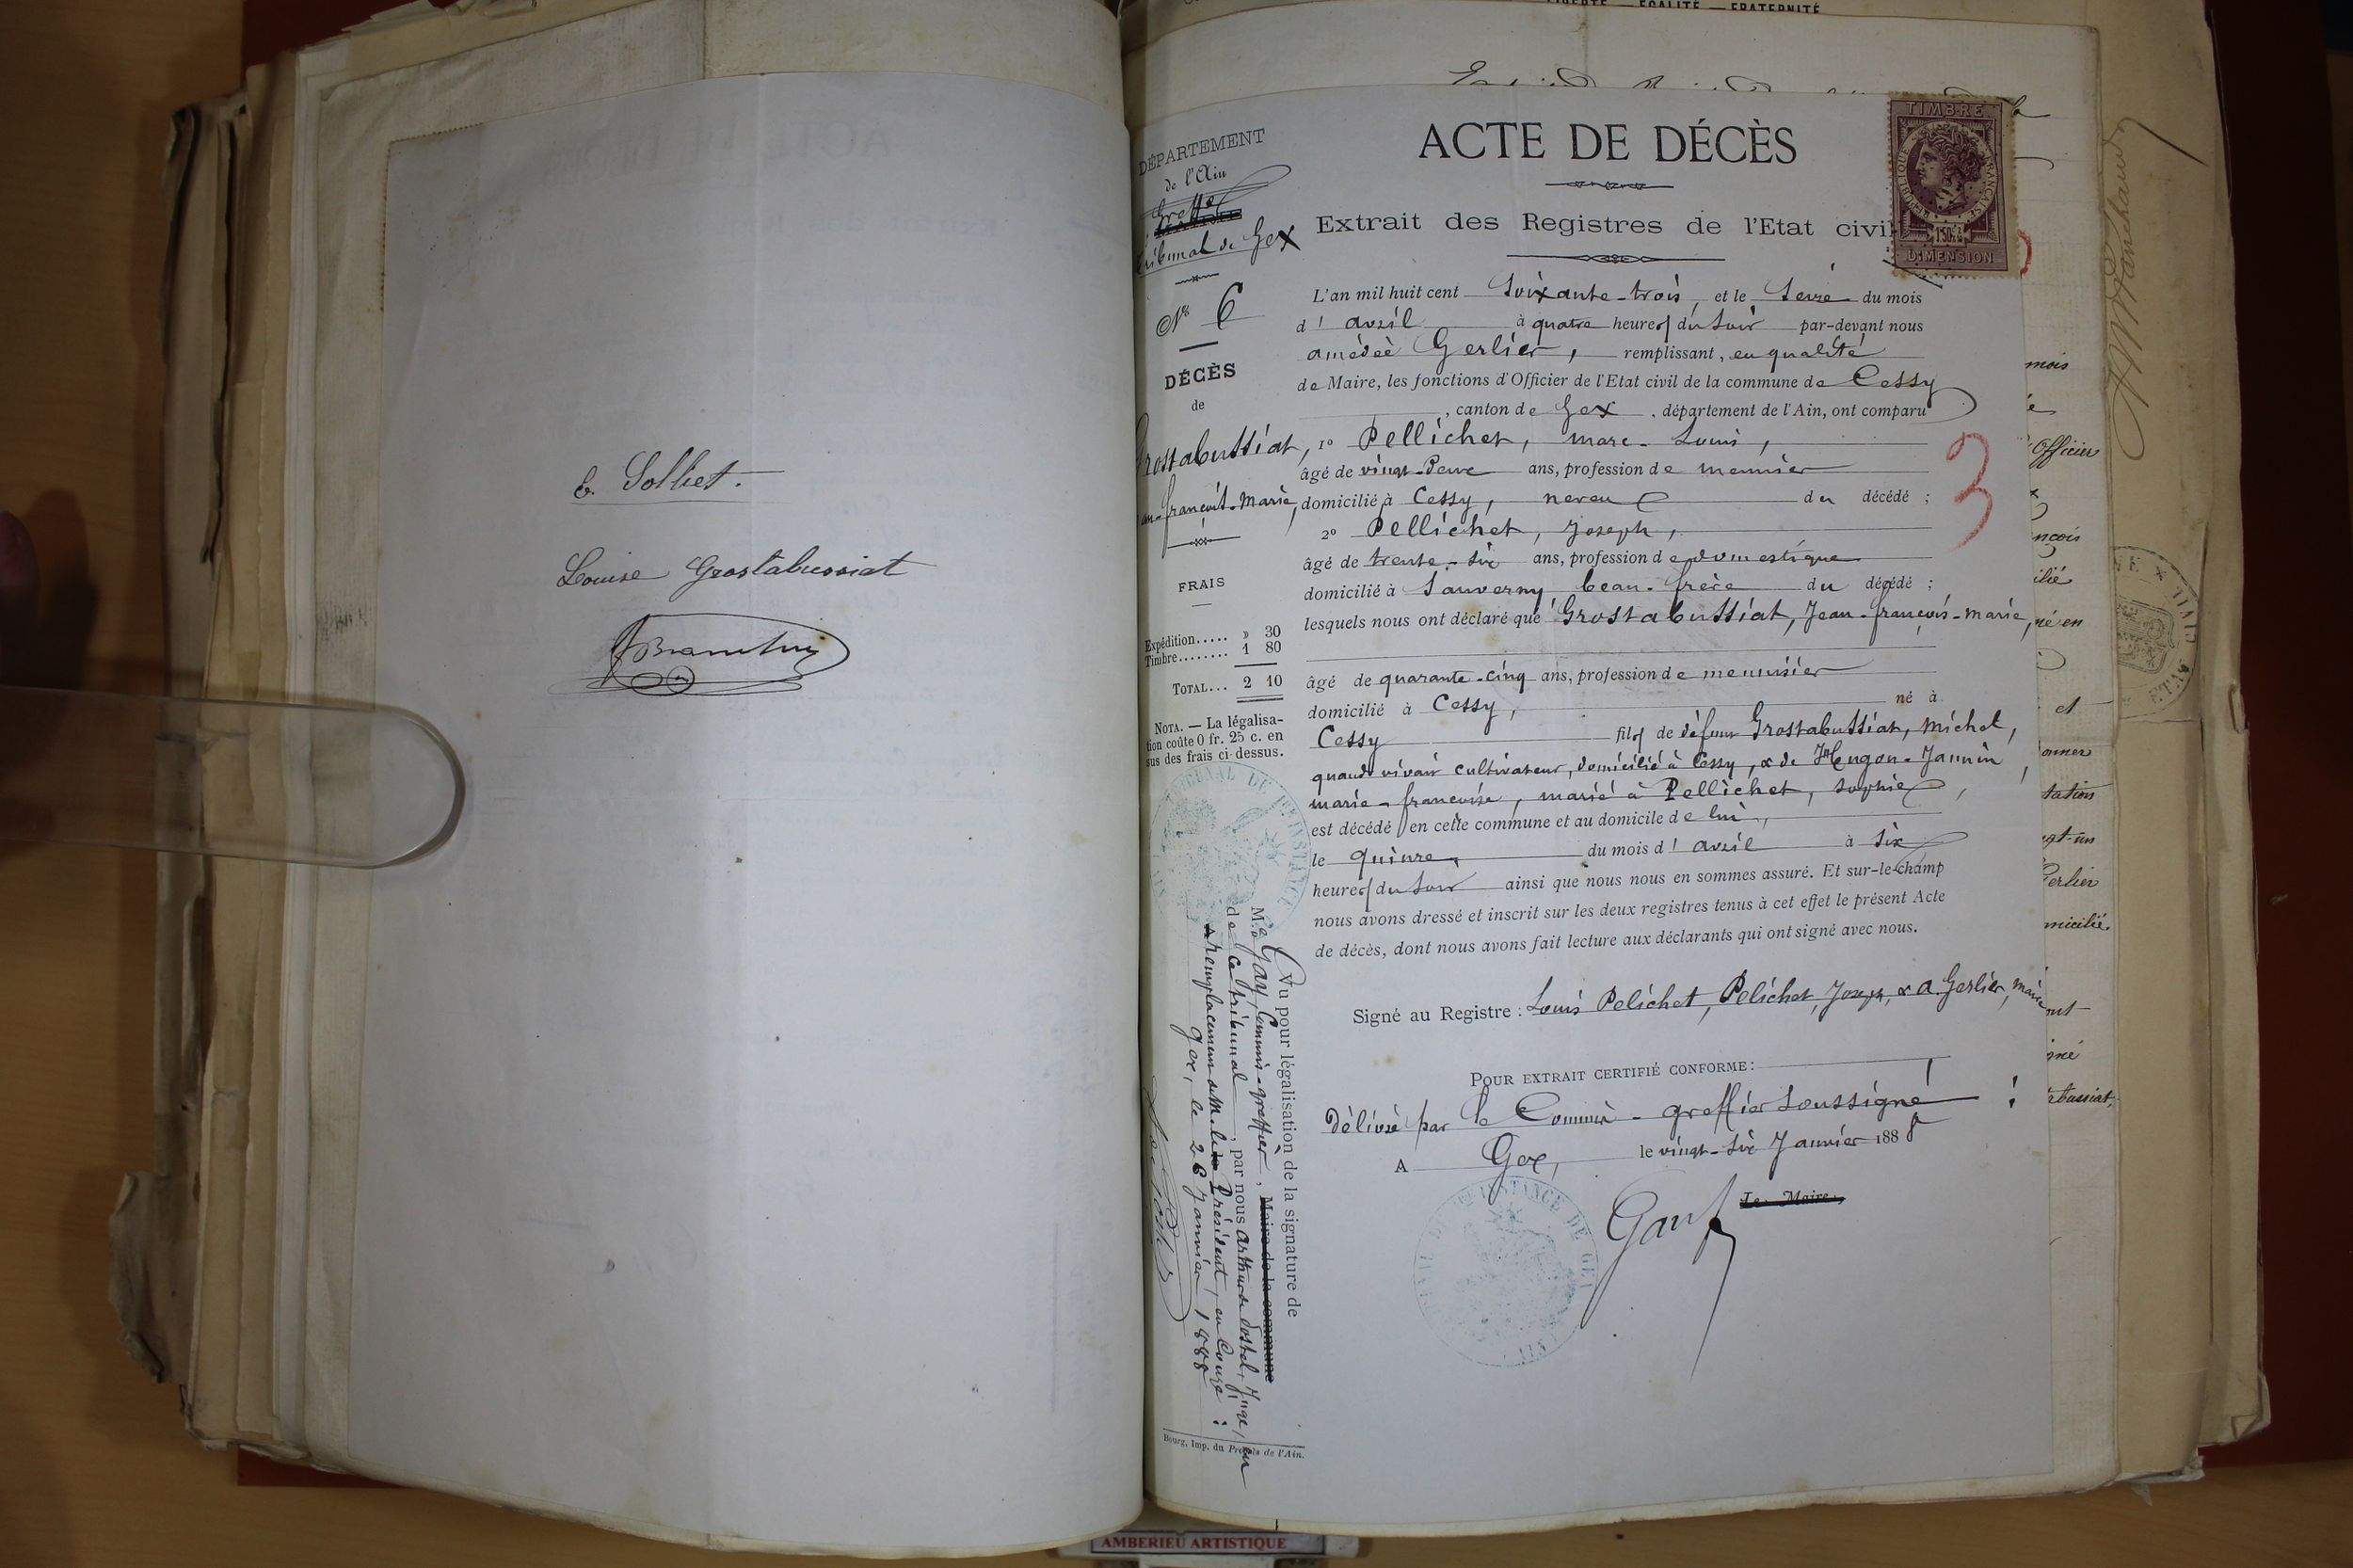 E. Solliet.
Louise Grostabussiat
LIBERTÉ — EGALITÉ — FRATERNITÉ
DÉPARTEMENT
de l'Ain
Greffe
Tribunal de Gex
N° 6
DÉCÈS
de
Grostabussiat,
Jean-françois-Marie,
FRAIS
Expédition..... » 30
Timbre........ 1 80
TOTAL... 2 10
NOTA. — La légalisa-
tion coûte 0 fr. 25 c. en
sus des frais ci-dessus.
Vu pour légalisation de la signature de
M. Gay, Commis-greffier, Maire de la commune
de ce tribunal, par nous Arthur de Postel, Juge, en
remplacement de M. le Président, en Congé :
Gex, le 26 Janvier 1888
Bourg, Imp. du Progrès de l'Ain.
ACTE DE DÉCÈS
Extrait des Registres de l'Etat civil
TIMBRE
RÉPUBLIQUE FRANÇAISE
DIMENSION
L'an mil huit cent Soixante-trois, et le Seize du mois
d'avril à quatre heures du Soir par-devant nous
amédéé Gerlier, remplissant, en qualité
de Maire, les fonctions d'Officier de l'Etat civil de la commune de Cessy
, canton de Gex, département de l'Ain, ont comparu
1° Pellichet, marc-Louis,
âgé de vingt-deux ans, profession de meunier
domicilié à Cessy, neveu du décédé ;
2° Pellichet, Joseph,
âgé de trente-six ans, profession de domestique
domicilié à Sauverny, beau-frère du décédé ;
lesquels nous ont déclaré que Grostabussiat, Jean-françois-marie,
âgé de quarante-cinq ans, profession de menuisier
domicilié à Cessy, né à
Cessy fils de défunt Grostabussiat, michel,
quand vivait cultivateur, domicilié à Cessy, & de Hugon-Jannin
marie-françoise, marié à Pellichet, Sophie,
est décédé en cette commune et au domicile de lui,
le quinze, du mois d'avril à six
heures du Soir ainsi que nous nous en sommes assuré. Et sur-le-champ
nous avons dressé et inscrit sur les deux registres tenus à cet effet le présent Acte
de décès, dont nous avons fait lecture aux déclarants qui ont signé avec nous.
Signé au Registre : Louis Pelichet, Pelichet, Joseph, & a. Gerlier, maire
POUR EXTRAIT CERTIFIÉ CONFORME :
Délivré par le Commis-greffier Soussigné :
A Gex, le vingt-six Janvier 1888
Le Maire,
Gay
3
AMBERIEU ARTISTIQUE